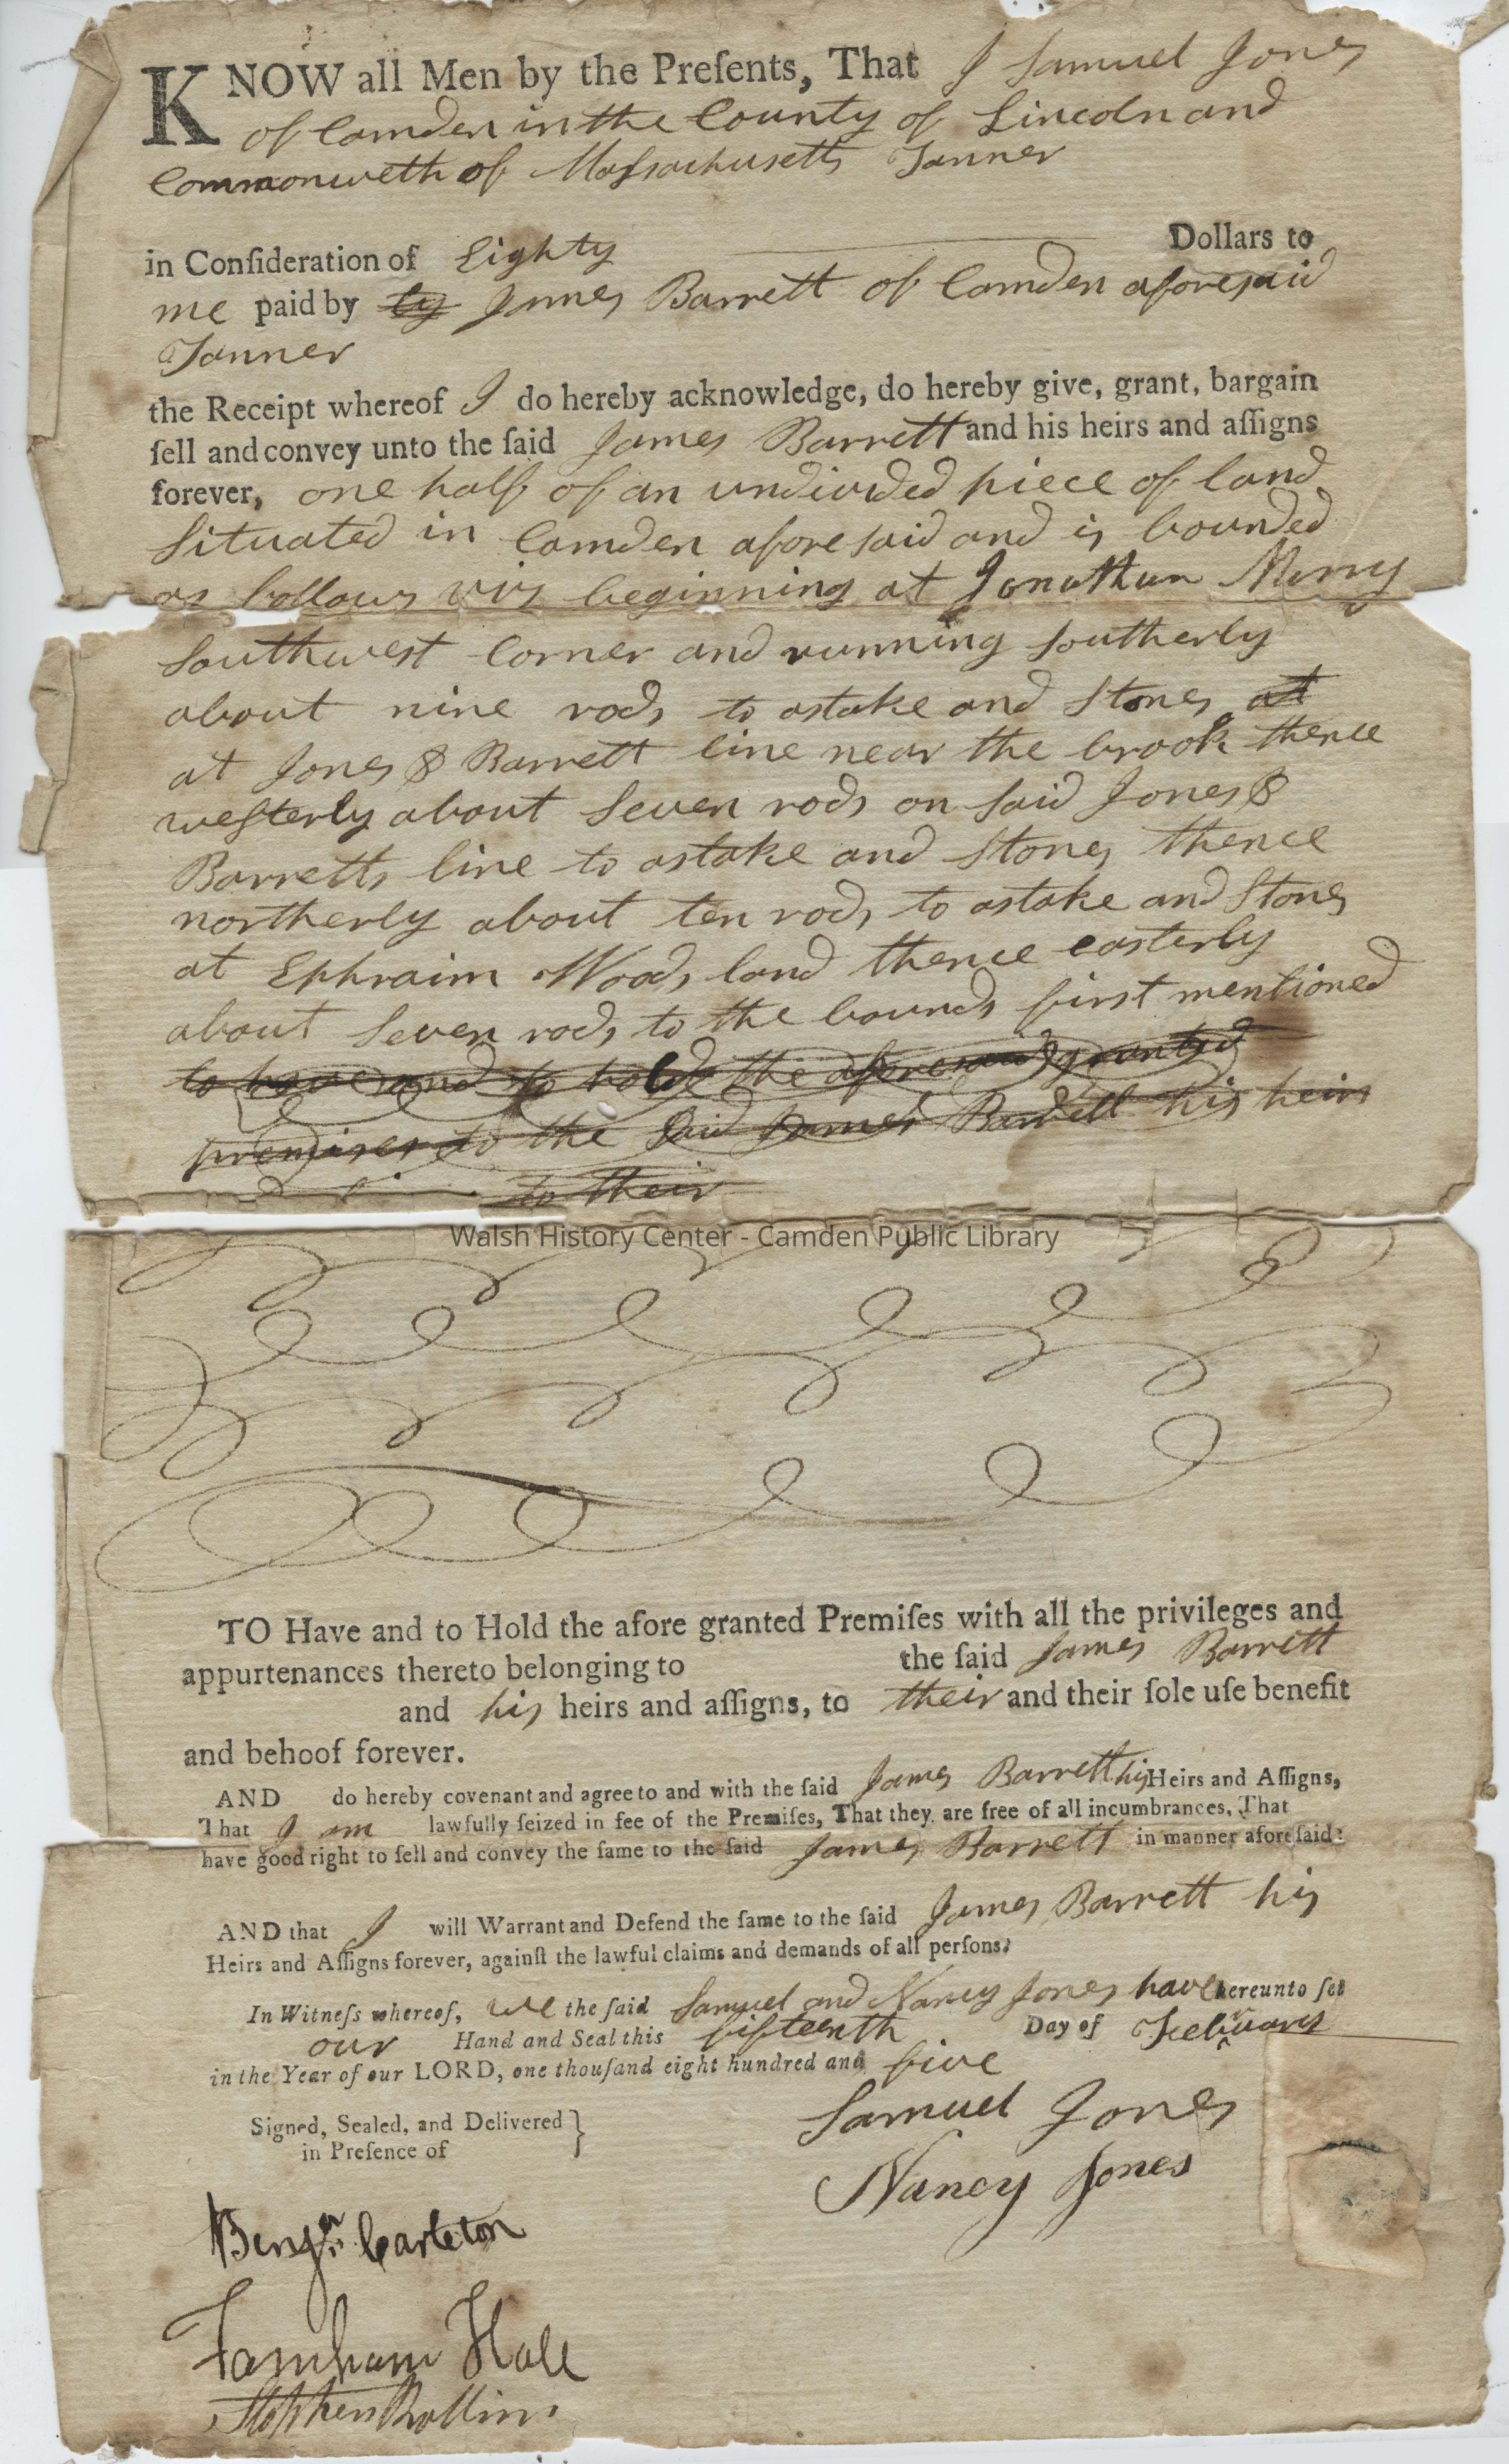 KNOW all Men by the Preſents, That I Samuel Jones
of Camden in the County of Lincoln and
Commonweth of Massachusetts Tanner
in Conſideration of Eighty Dollars to
me paid by by James Barrett of Camden aforesaid
Tanner
the Receipt whereof I do hereby acknowledge, do hereby give, grant, bargain
ſell and convey unto the ſaid James Barrett and his heirs and aſſigns
forever, one half of an undivided piece of land
Situated in Camden aforesaid and is bounded
as follows viz beginning at Jonathan Merry
Southwest Corner and running Southerly
about nine rods to astake and Stones at
at Jones & Barrett line near the brook thence
westerly about Seven rods on said Jones &
Barretts line to astake and Stones thence
northerly about ten rods to astake and Stones
at Ephraim Woods land thence easterly
about Seven rods to the bounds first mentioned
to have and to hold the aforesaid granted
premises to the Said James Barrett his heirs
to their
Walsh History Center - Camden Public Library
TO Have and to Hold the afore granted Premiſes with all the privileges and
appurtenances thereto belonging to the ſaid James Barrett
and his heirs and aſſigns, to their and their ſole uſe benefit
and behoof forever.
AND do hereby covenant and agree to and with the ſaid James Barrett his Heirs and Aſſigns,
That I am lawfully ſeized in fee of the Premiſes, That they are free of all incumbrances, That
have good right to ſell and convey the ſame to the ſaid James Barrett in manner aforeſaid:
AND that I will Warrant and Defend the ſame to the ſaid James Barrett his
Heirs and Aſſigns forever, againſt the lawful claims and demands of all perſons.
In Witneſs whereof, We the ſaid Samuel and Nancy Jones have hereunto ſet
our Hand and Seal this fifteenth Day of Feebruary
in the Year of our LORD, one thouſand eight hundred and five
Signed, Sealed, and Delivered }
in Preſence of
Samuel Jones
Nancy Jones
Benjn. Carleton
Farnham Hall
Stephen Rollins